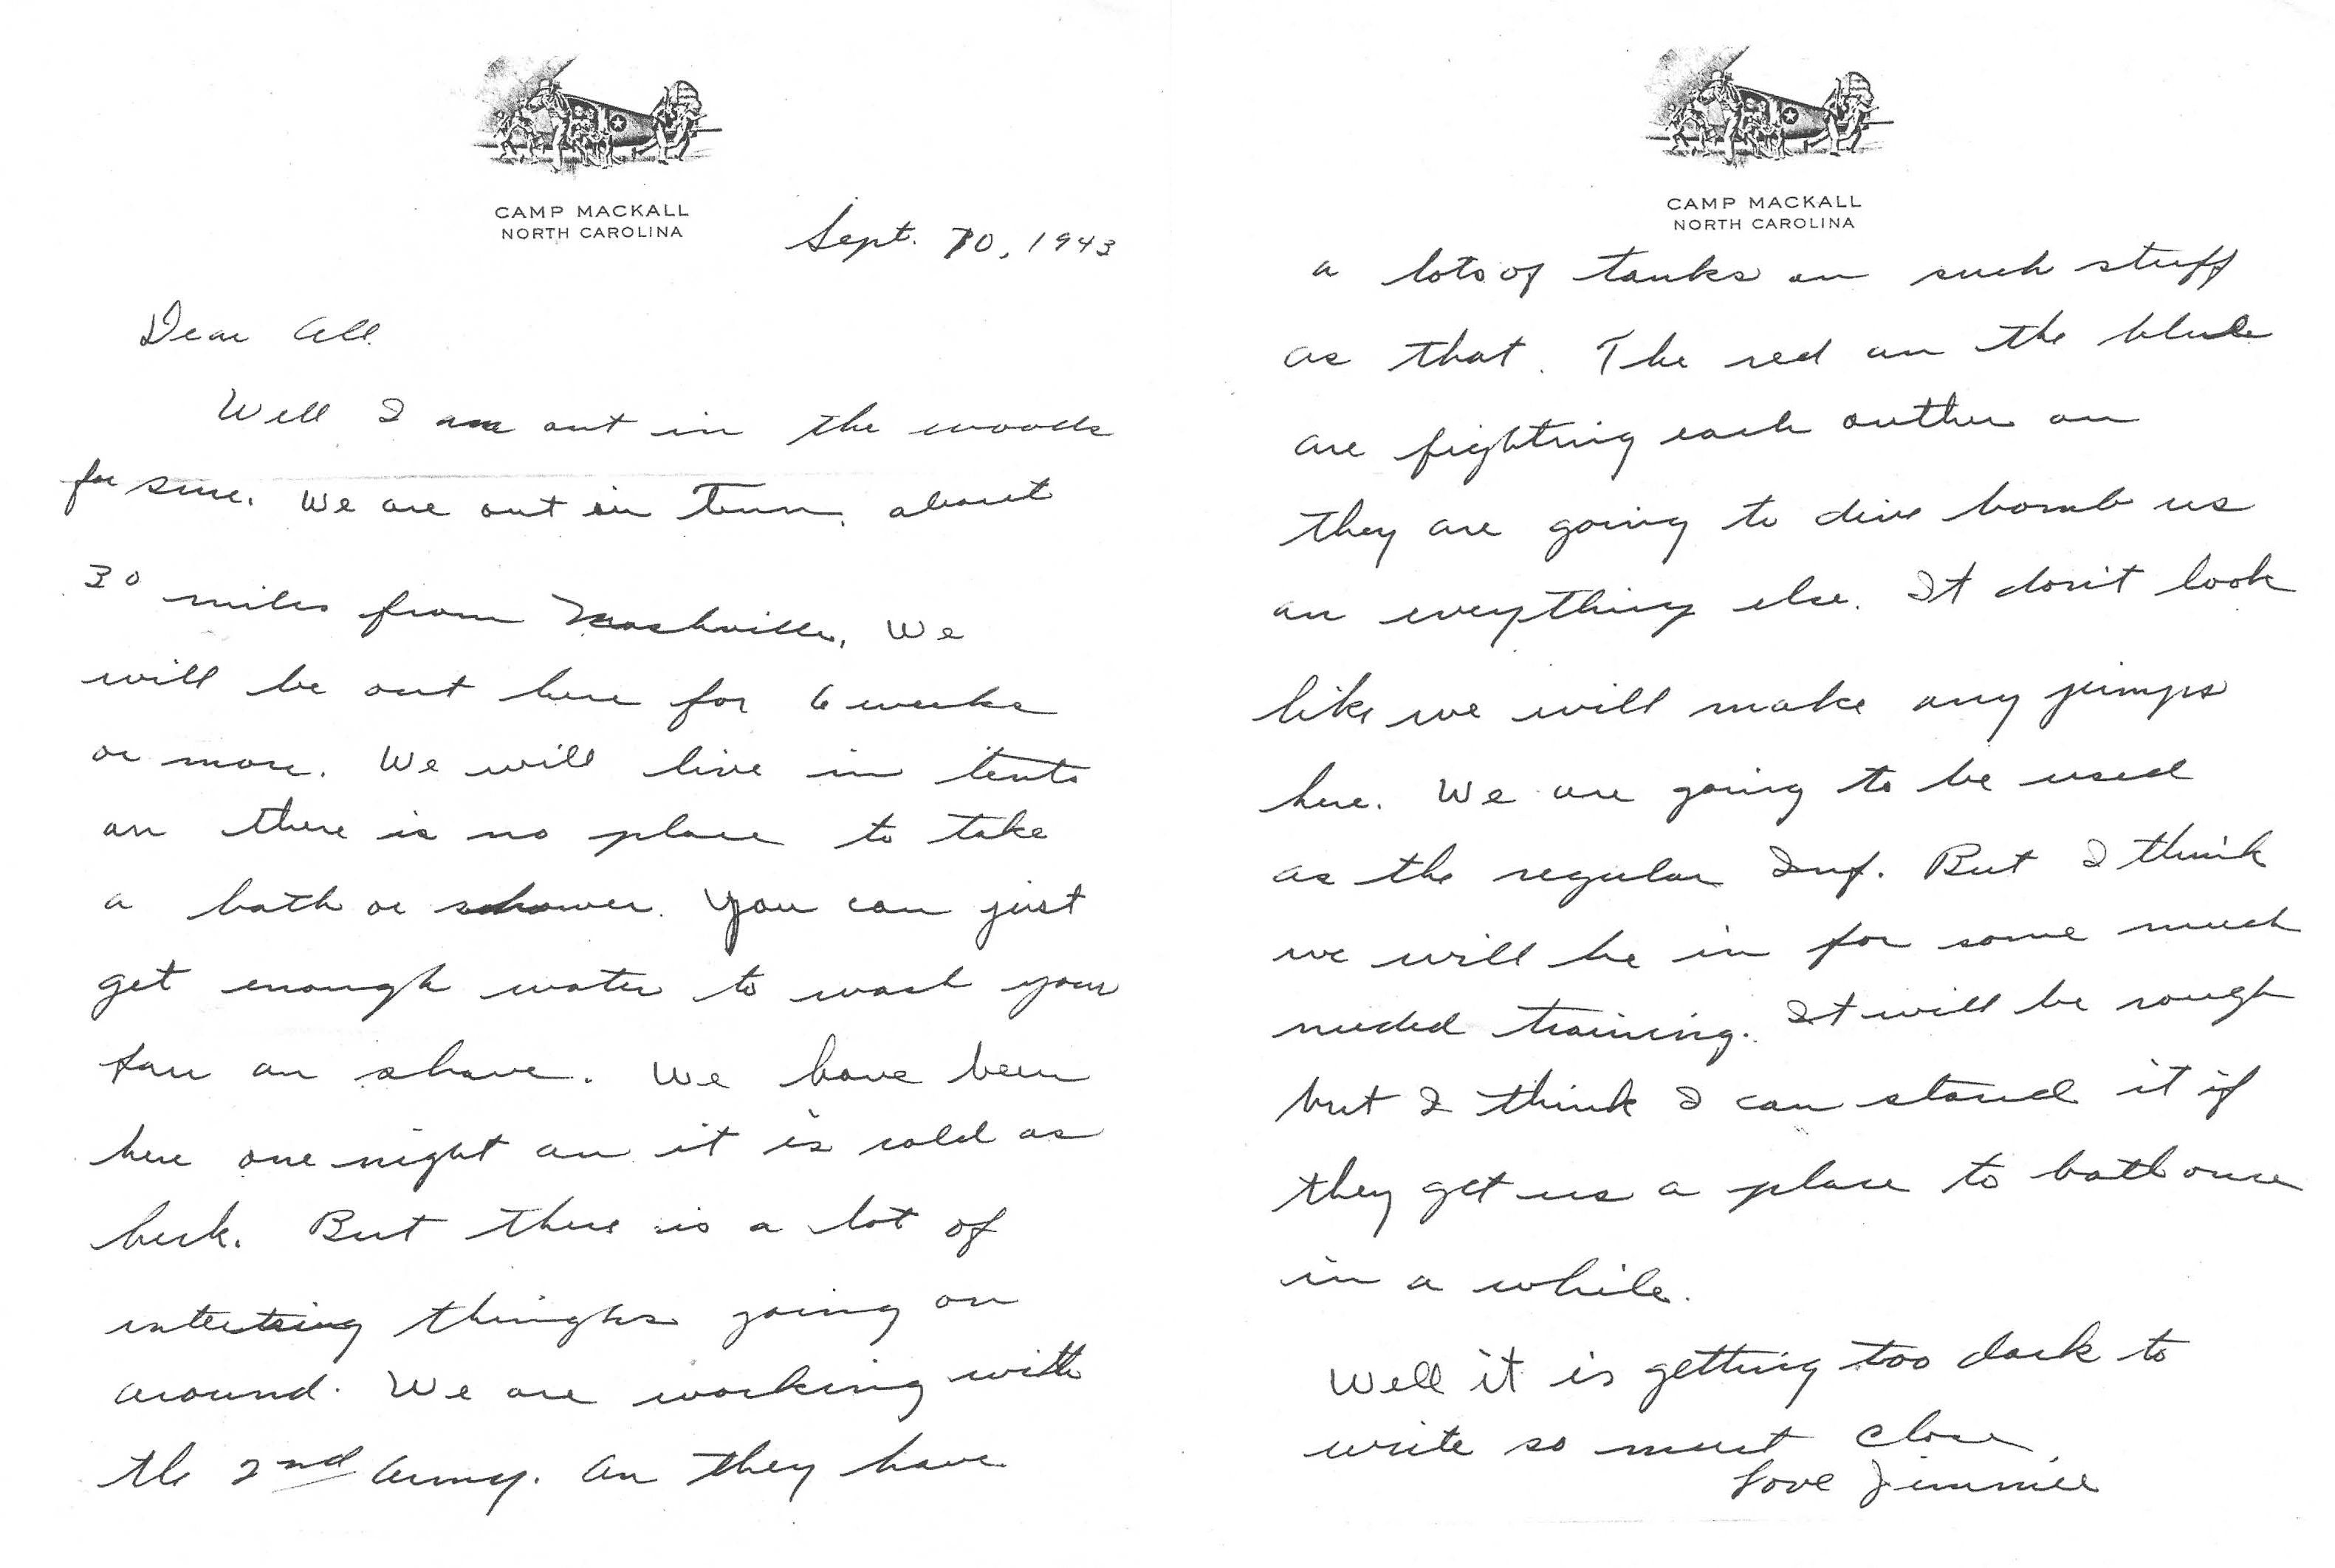 CAMP MACKALL
NORTH CAROLINA
Sept. 10, 1943
Dear All.
Well I am out in the woods
for sure. We are out in Tenn. about
30 miles from Nashville, We
will be out here for 6 weeks
or more. We will live in tents
an there is no place to take
a bath or shower. You can just
get enough water to wash your
face an shave. We have been
here one night an it is cold as
heck. But there is a lot of
interesting things going on
around. We are working with
the 2nd Army. An they have
CAMP MACKALL
NORTH CAROLINA
a lots of tanks an such stuff
as that. The red an the blue
are fighting each outher an
they are going to dive bomb us
an everything else. It don't look
like we will make any jumps
here. We are going to be used
as the regular Inf. But I think
we will be in for some much
needed training. It will be rough
but I think I can stand it if
they get us a place to bath once
in a while.
Well it is getting too dark to
write so must close,
Love Jimmie